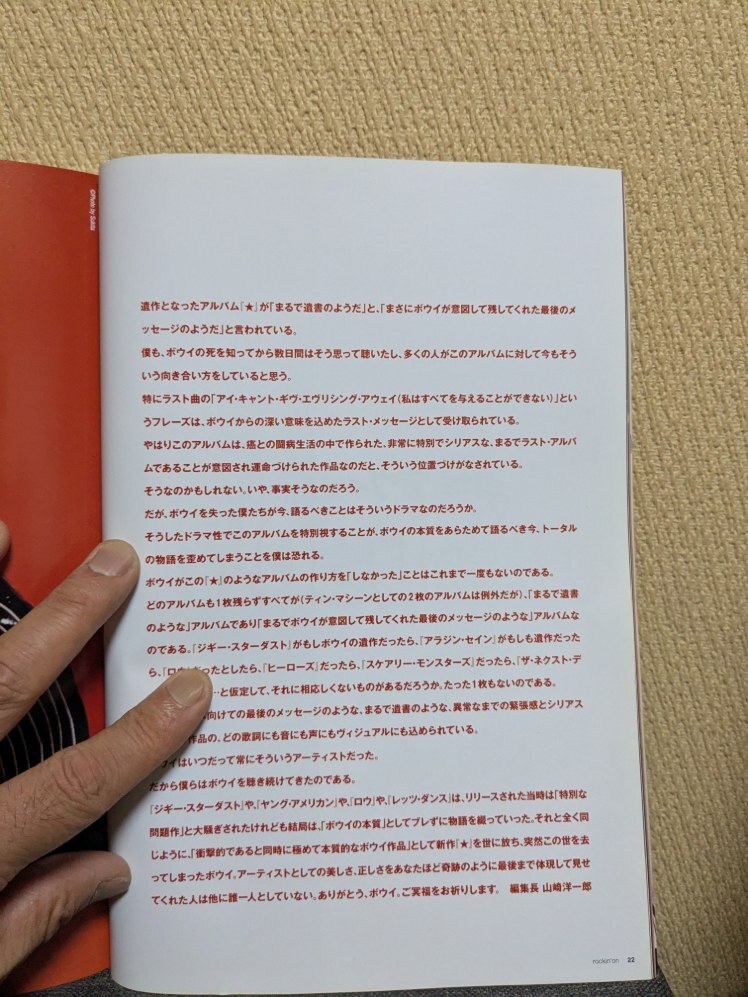 ©Photo by Sukita
遺作となったアルバム『★』が「まるで遺書のようだ」と、「まさにボウイが意図して残してくれた最後のメ
ッセージのようだ」と言われている。
僕も、ボウイの死を知ってから数日間はそう思って聴いたし、多くの人がこのアルバムに対して今もそう
いう向き合い方をしていると思う。
特にラスト曲の「アイ・キャント・ギヴ・エヴリシング・アウェイ(私はすべてを与えることができない)」とい
うフレーズは、ボウイからの深い意味を込めたラスト・メッセージとして受け取られている。
やはりこのアルバムは、癌との闘病生活の中で作られた、非常に特別でシリアスな、まるでラスト・アルバ
ムであることが意図され運命づけられた作品なのだと、そういう位置づけがなされている。
そうなのかもしれない。いや、事実そうなのだろう。
だが、ボウイを失った僕たちが今、語るべきことはそういうドラマなのだろうか。
そうしたドラマ性でこのアルバムを特別視することが、ボウイの本質をあらためて語るべき今、トータル
の物語を歪めてしまうことを僕は恐れる。
ボウイがこの『★』のようなアルバムの作り方を「しなかった」ことはこれまで一度もないのである。
どのアルバムも1枚残らずすべてが(ティン・マシーンとしての2枚のアルバムは例外だが)、「まるで遺書
のような」アルバムであり「まるでボウイが意図して残してくれた最後のメッセージのような」アルバムな
のである。『ジギー・スターダスト』がもしボウイの遺作だったら、『アラジン・セイン』がもしも遺作だった
ら、『ロウ』だったとしたら、『ヒーローズ』だったら、『スケアリー・モンスターズ』だったら、『ザ・ネクスト・デ
…と仮定して、それに相応しくないものがあるだろうか。たった1枚もないのである。
向けての最後のメッセージのような、まるで遺書のような、異常なまでの緊張感とシリアス
作品の、どの歌詞にも音にも声にもヴィジュアルにも込められている。
イはいつだって常にそういうアーティストだった。
だから僕らはボウイを聴き続けてきたのである。
『ジギー・スターダスト』や、『ヤング・アメリカン』や、『ロウ』や、『レッツ・ダンス』は、リリースされた当時は「特別な
問題作」と大騒ぎされたけれども結局は、「ボウイの本質」としてブレずに物語を綴っていった。それと全く同
じように、「衝撃的であると同時に極めて本質的なボウイ作品」として新作『★』を世に放ち、突然この世を去
ってしまったボウイ。アーティストとしての美しさ、正しさをあなたほど奇跡のように最後まで体現して見せ
てくれた人は他に誰一人としていない。ありがとう、ボウイ。ご冥福をお祈りします。 編集長 山崎洋一郎
rockin'on 22